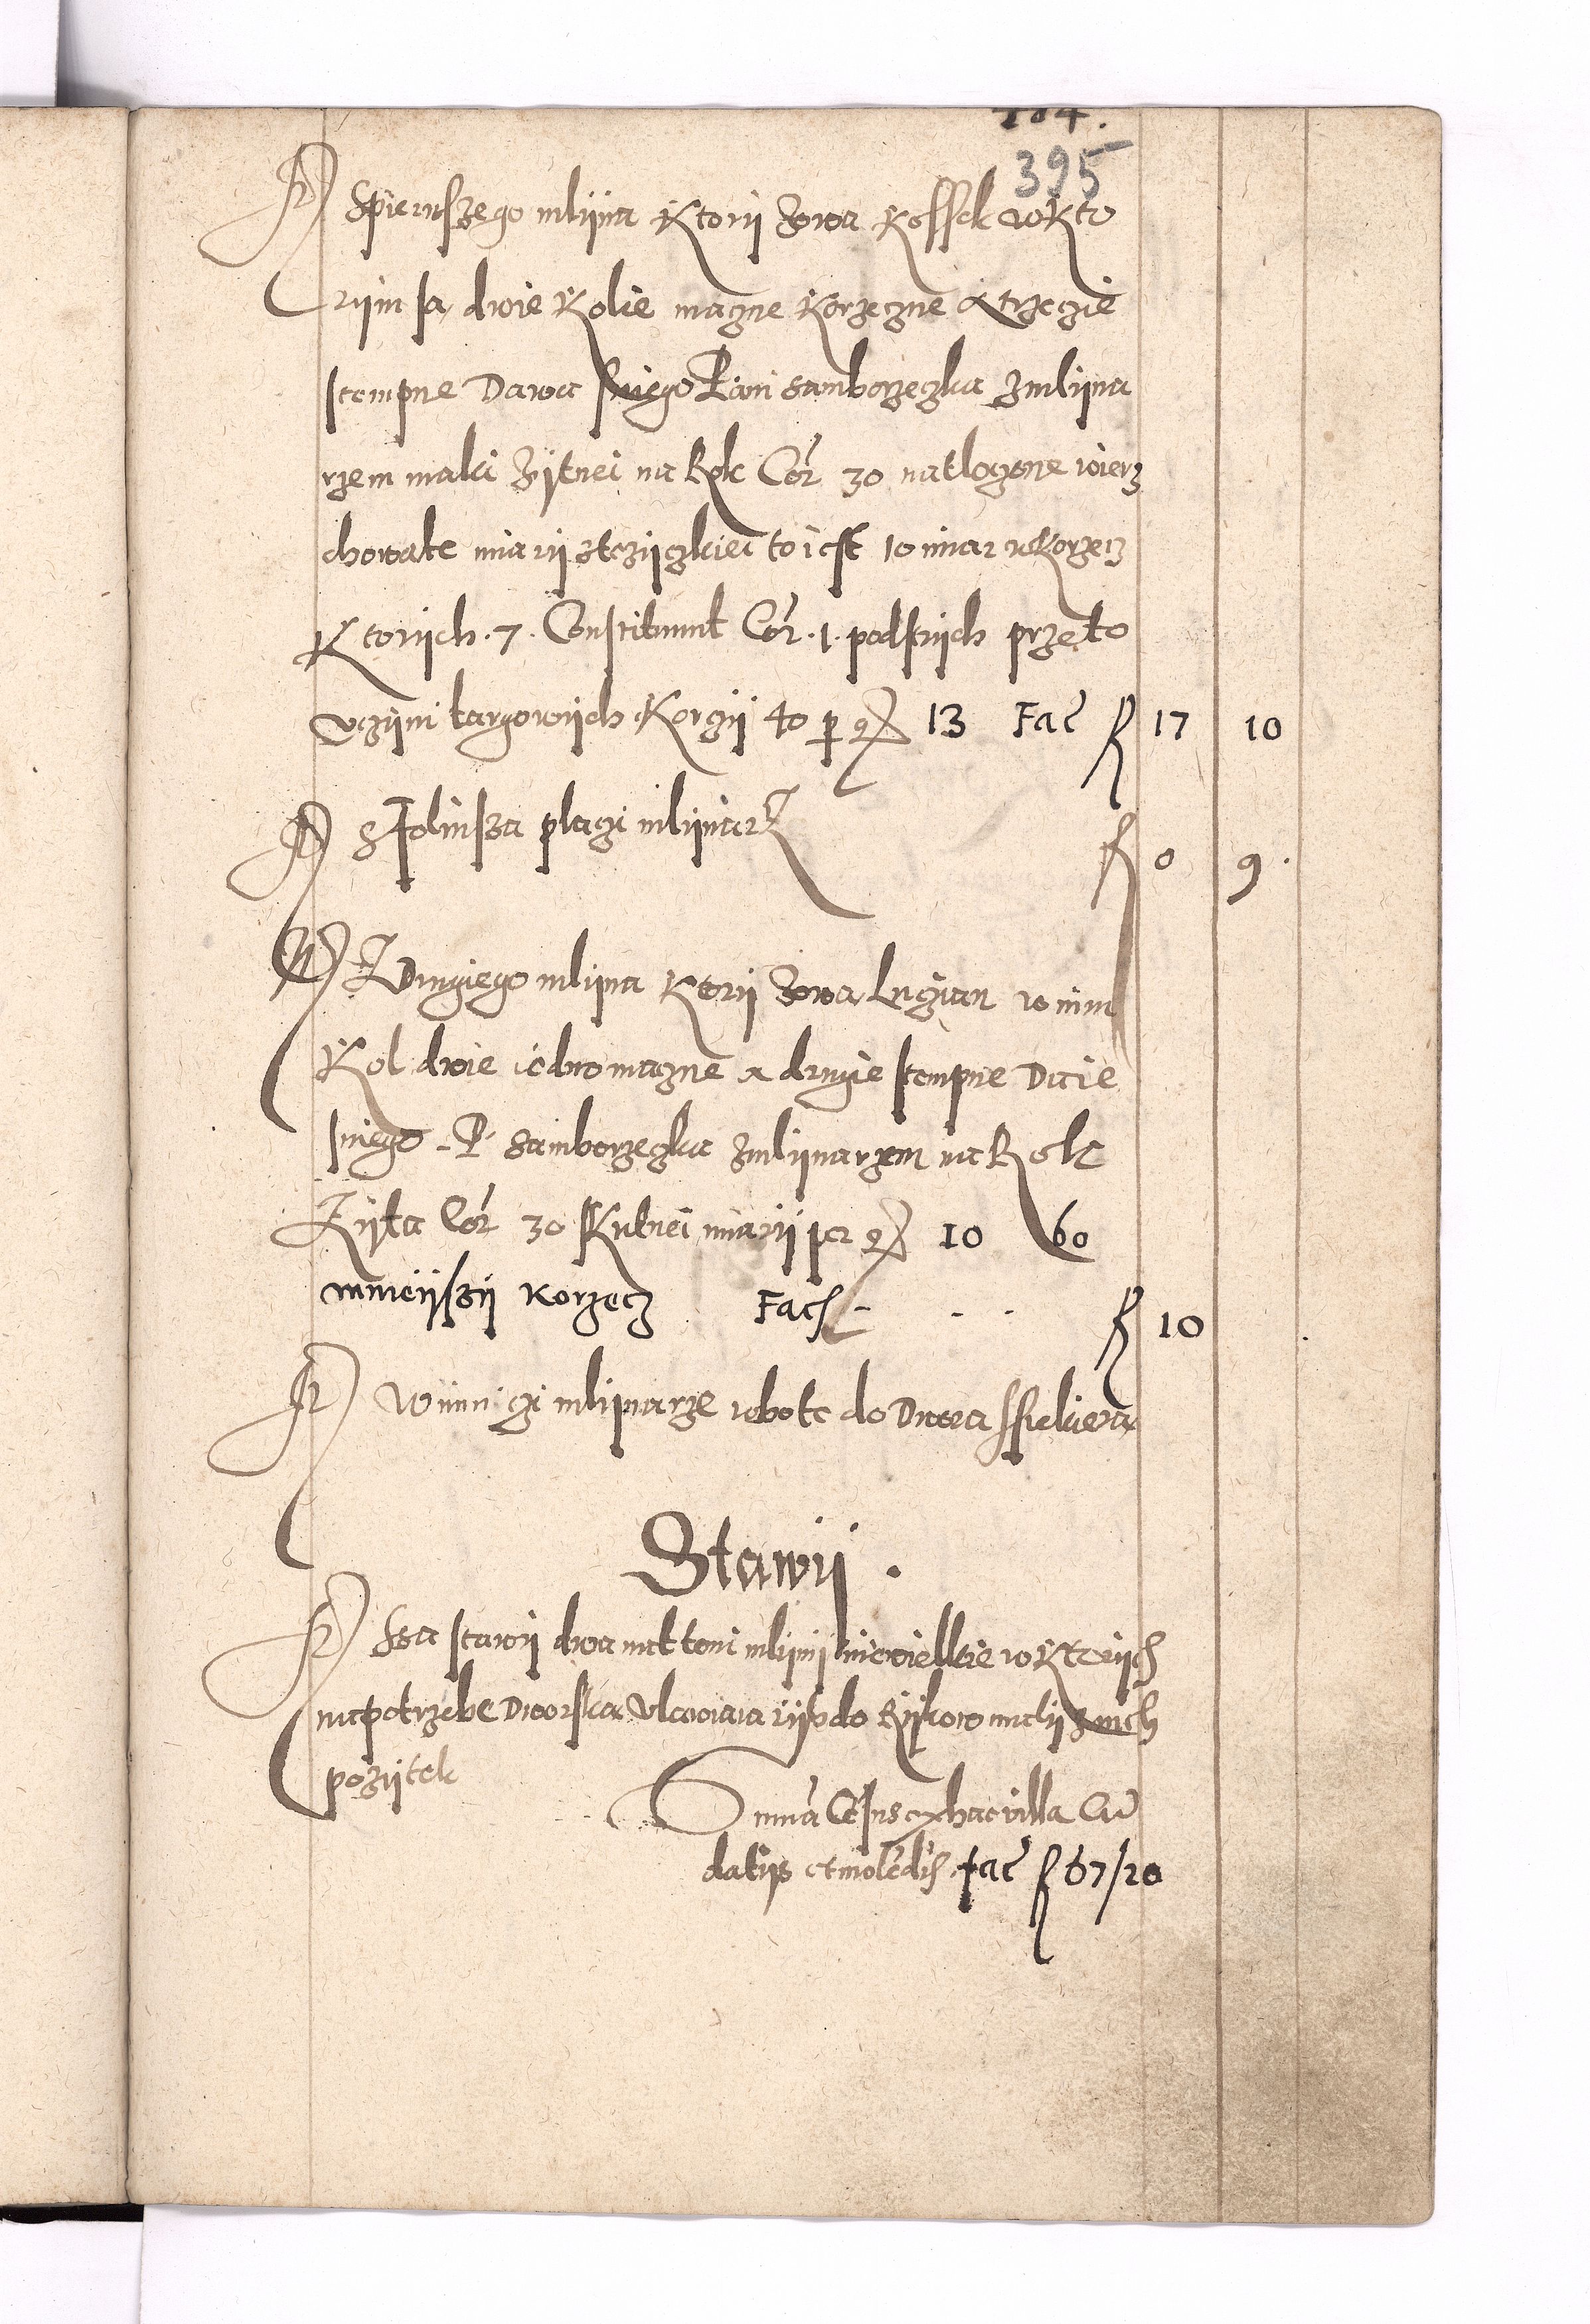 395
It Spierwszego mlijna Ktorij zowa Kossek wKto
rijm sa dwie Kolie maczne Korzeczne a trzeczie
stempne Dawa sniego Pani samborzeczka zmlijna
rzem maki żijtnei na Rok Cor 30 natloczone wierz
chowate miarij stczijczkiei to iest 10 miar wKorzecz
Ktorijch ∙ 7 ∙ Constituunt Cor ∙ 1 ∙ podstrijch przeto
vczijni targowijch Korczij 40 p gr 13 Fac f 17 10
It STolinsza placzi mlijnarz f 0 9 ∙
It Z Drugiego mlijna Ktorij zowa Luczian w nim
Kol dwie iedno maczne a drugie stempne Daie
sniego P. samborzeczka zmlijnarzem na Rok
Zijta Cor 30 Skutnei miarij per gr 10 bo
mnieijszij Korzecz Facit - - - f 10
It Winni czi mlijnarze robote do Dwora ssiekiera
Stawij ∙
It Ssa stawij dwa naktoni mlijnij niewielkie wKtorijch
napotrzebe Dworska vlawiaia rijb do Rijkow maly znich
pozijtek
Summa Census ex hac villa Cum
datijs et molendis fac f 67/20